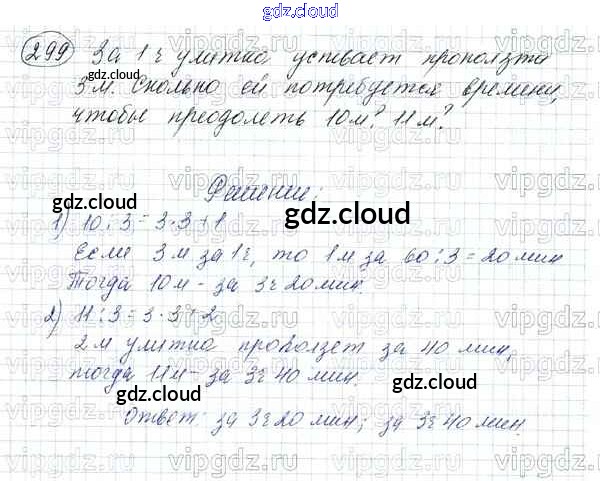 gdz.cloud
299 За 1 ч улитка успевает проползти
3 м. Сколько ей потребуется времени,
чтобы преодолеть 10 м? 11 м?
Решение:
1) 10 : 3 = 3 · 3 + 1
Если 3 м за 1 ч, то 1 м за 60 : 3 = 20 мин
Тогда 10 м - за 3 ч 20 мин.
2) 11 : 3 = 3 · 3 + 2
2 м улитка проползет за 40 мин,
тогда 11 м - за 3 ч 40 мин.
Ответ: за 3 ч 20 мин; за 3 ч 40 мин.
gdz.cloud
gdz.cloud
gdz.cloud
gdz.cloud
gdz.cloud
gdz.cloud
gdz.cloud
gdz.cloud
vipgdz.ru